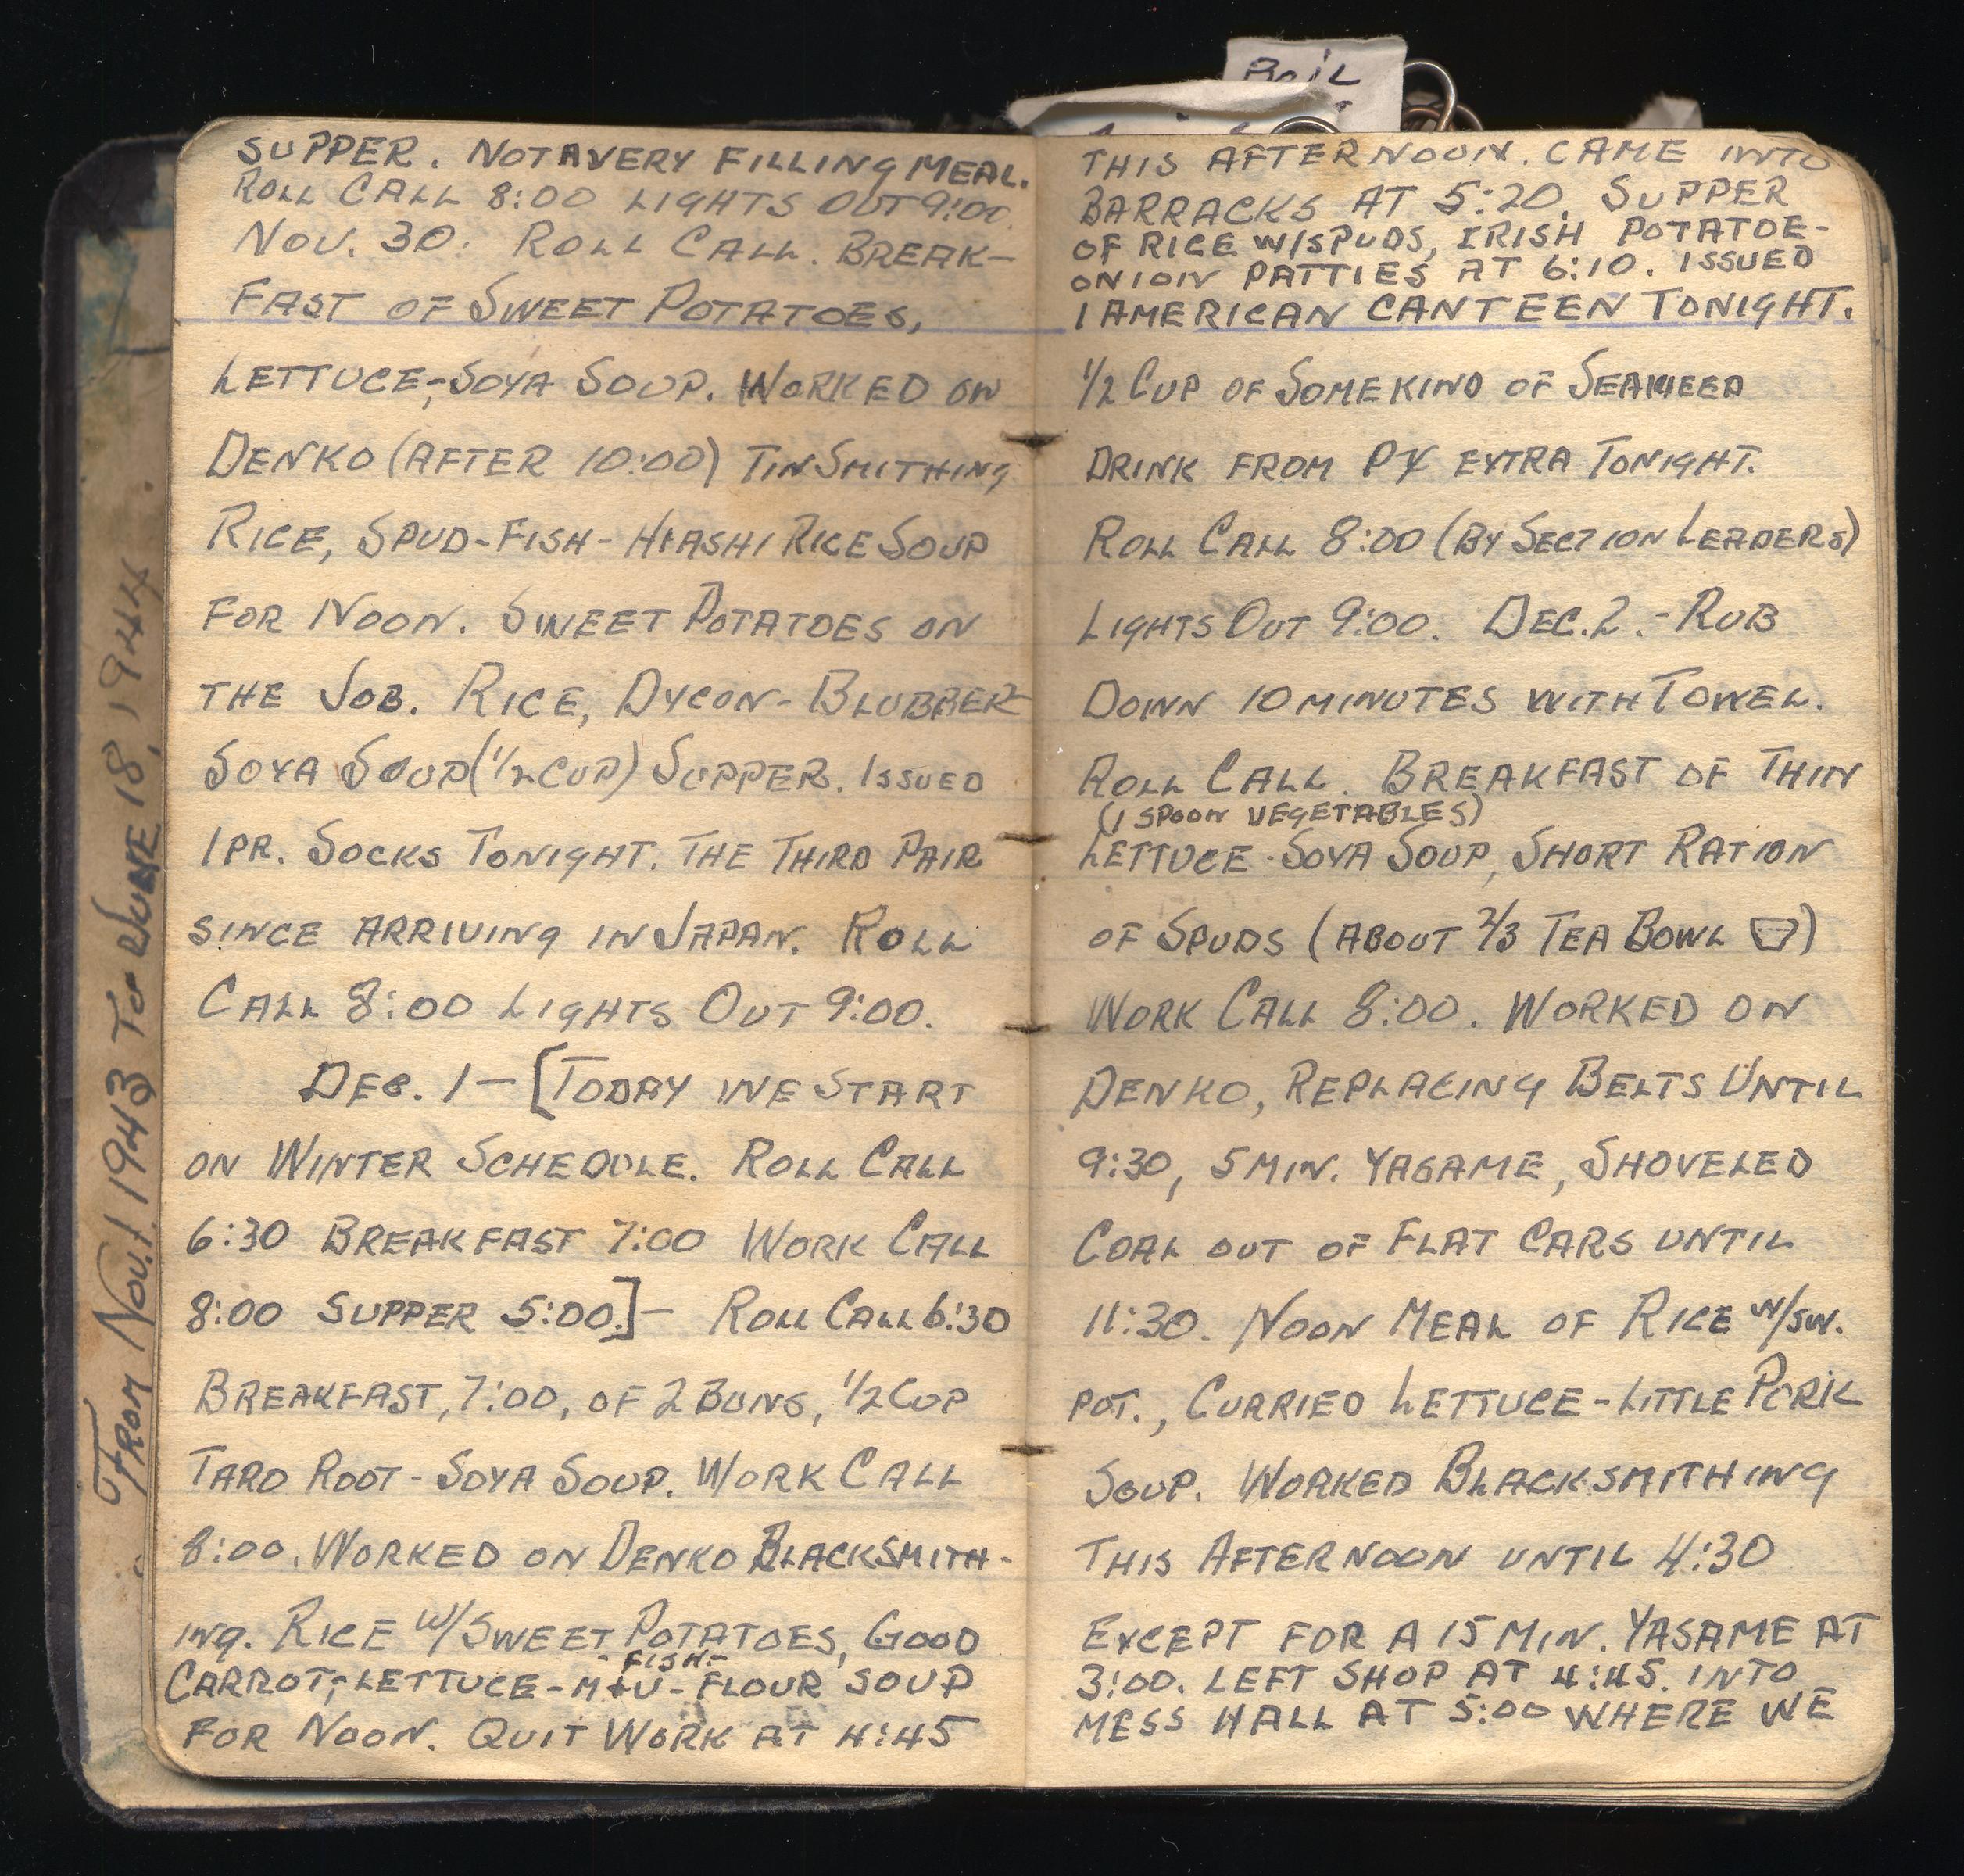 Boil
From Nov. 1 1943 To June 18, 1944
SUPPER. NOT A VERY FILLING MEAL.
ROLL CALL 8:00 LIGHTS OUT 9:00.
NOV. 30. ROLL CALL. BREAK-
FAST OF SWEET POTATOES,
LETTUCE-SOYA SOUP. WORKED ON
DENKO (AFTER 10:00) TINSMITHING
RICE, SPUD-FISH-HIASHI RICE SOUP
FOR NOON. SWEET POTATOES ON
THE JOB. RICE, DYCON-BLUBBER-
SOYA SOUP (1/2 CUP) SUPPER. ISSUED
1 PR. SOCKS TONIGHT. THE THIRD PAIR
SINCE ARRIVING IN JAPAN. ROLL
CALL 8:00 LIGHTS OUT 9:00.
DEC. 1 - [TODAY WE START
ON WINTER SCHEDULE. ROLL CALL
6:30 BREAKFAST 7:00 WORK CALL
8:00 SUPPER 5:00.] - ROLL CALL 6:30
BREAKFAST, 7:00, OF 2 BUNS, 1/2 CUP
TARO ROOT-SOYA SOUP. WORK CALL
8:00. WORKED ON DENKO BLACKSMITH-
ING. RICE W/SWEET POTATOES, GOOD
-FISH-
CARROT-LETTUCE-M+V-FLOUR SOUP
FOR NOON. QUIT WORK AT 4:45
THIS AFTERNOON. CAME INTO
BARRACKS AT 5:20. SUPPER
OF RICE W/SPUDS, IRISH POTATOE-
ONION PATTIES AT 6:10. ISSUED
1 AMERICAN CANTEEN TONIGHT.
1/2 CUP OF SOME KIND OF SEAWEED
DRINK FROM PX EXTRA TONIGHT.
ROLL CALL 8:00 (BY SECTION LEADERS)
LIGHTS OUT 9:00. DEC. 2. - RUB
DOWN 10 MINUTES WITH TOWEL.
ROLL CALL. BREAKFAST OF THIN
(1 SPOON VEGETABLES)
LETTUCE-SOYA SOUP, SHORT RATION
OF SPUDS (ABOUT 2/3 TEA BOWL)
WORK CALL 8:00. WORKED ON
DENKO, REPLACING BELTS UNTIL
9:30, 5 MIN. YASAME, SHOVELED
COAL OUT OF FLAT CARS UNTIL
11:30. NOON MEAL OF RICE W/SW.
POT., CURRIED LETTUCE-LITTLE PORK
SOUP. WORKED BLACKSMITHING
THIS AFTERNOON UNTIL 4:30
EXCEPT FOR A 15 MIN. YASAME AT
3:00. LEFT SHOP AT 4:45. INTO
MESS HALL AT 5:00 WHERE WE